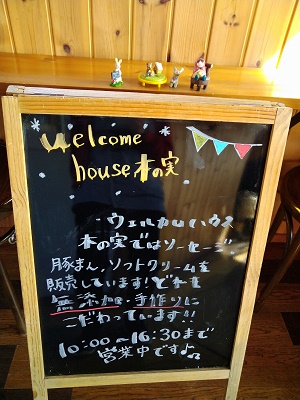 welcome
house 木の実
ウェルカムハウス
木の実ではソーセージ
豚まん、ソフトクリームを
販売しています！どれも
無添加・手作りに
こだわっています!!
10:00〜16:30まで
営業中です♪